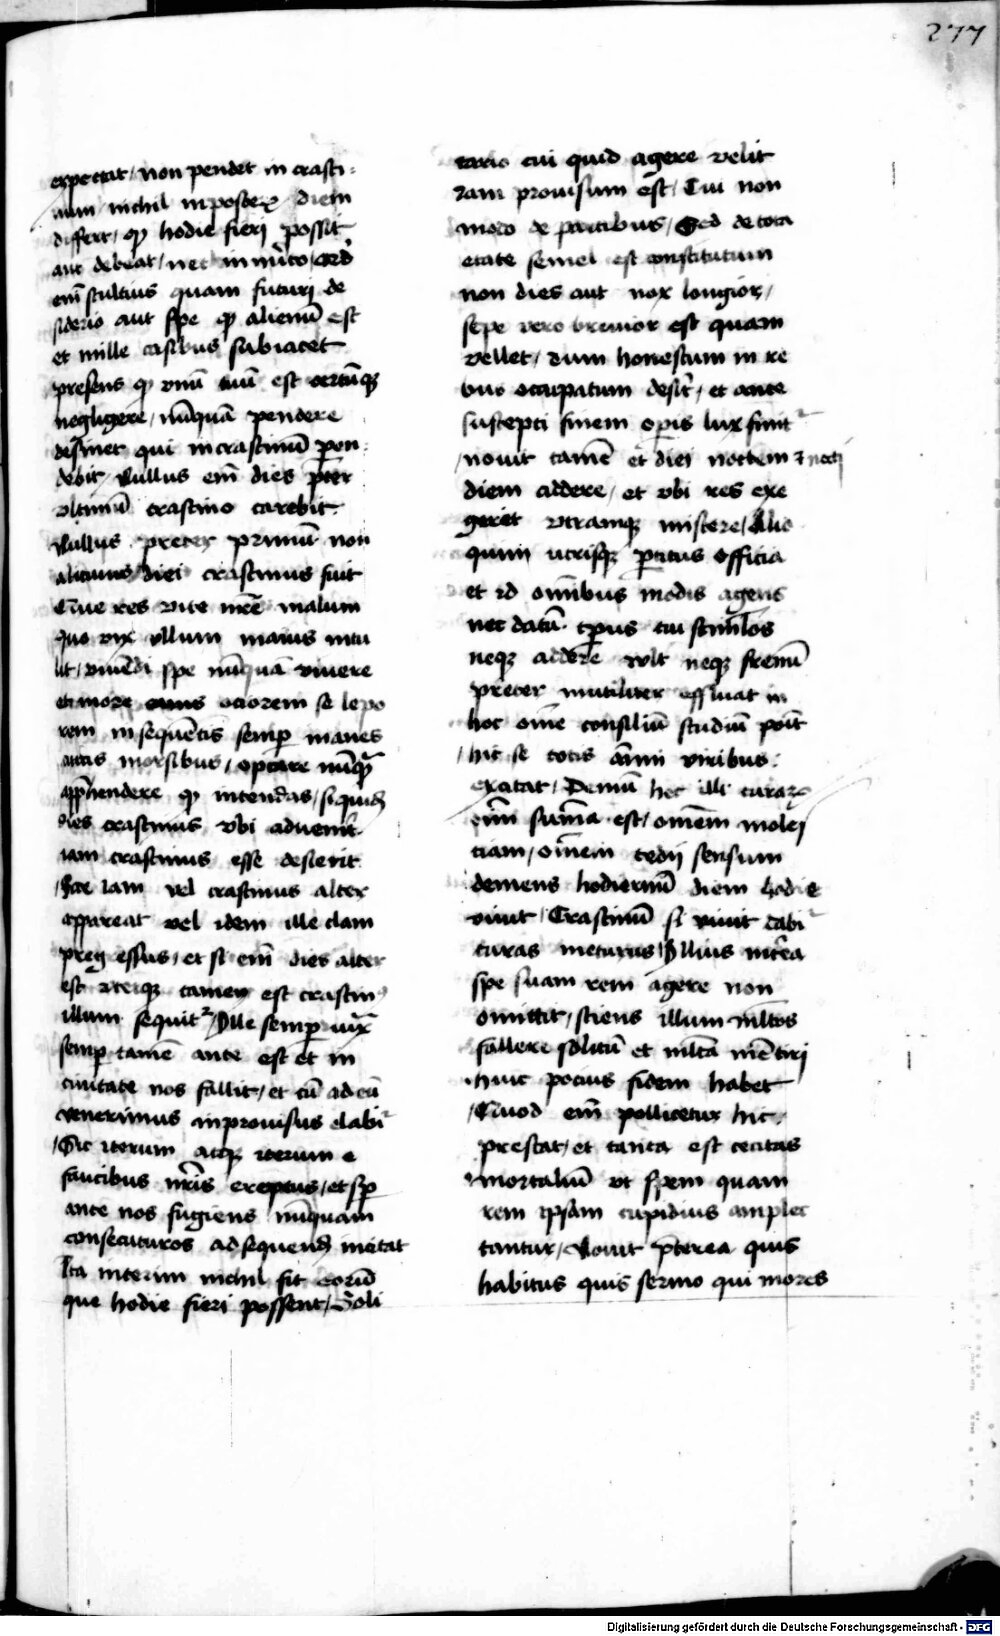 277
expectat / non pendet in crasti-
num / nichil in posteꝝ diem
differt / qꝫ hodie fieri possit
aut debeat / nec
em̄ stultius quam futuri de
siderio aut spe qꝫ alienū est
et mille casibus subiacet
presens qꝫ vnū tuū est
negligere / nūquā pendere
desinet qui in crastinū pen-
debit / Nullus em̄ dies p̄ter
vltimū crastino carebit
Nullus preter primū non
alicuius diei crastinus fuit
Que res vite nr̄e malum
quo vix vllum maius intu
lit / viuēdi spe nūquā viuere
et more ociorem se lepo
rem insequētis semper inanes
morsibus / optare nūqꝫ
app̄hendere qꝫ intendas / siquidē
dies crastinus vbi aduenit
iam crastinus esse desierit
/ Hac iam vel crastinus alter
appareat vel idem ille clam
essus / et si em̄ dies alter
est vterqꝫ tamen est crastinꝰ
illum sequitʳ / Ille semper
semper tamē ante est et in
ciuitate nos fallit / et cū ad eū
venerimus inprouisus elabiʳ
/ Sic iterum atqꝫ iterum e
faucibus nr̄is ereptus / et sp̄
ante nos fugiens nūquam
consecuturos ad sequendū incitat
Ita interim nichil fit eorū
que hodie fieri possent / Soli
tario cui quid agere velit
Iam prouisum est / Cui non
modo de partibus / Sed de tota
etate semel est constitutum
non dies aut nox longior /
sepe vero breuior est quam
vellet / dum honestum in re
bus occupatum desit̄ / et ante
suscepti finem op̄is lux finitʳ
/ nouit tamē et diei noctem ⁊ nocti
diem addere / et vbi res exe
gerit vtramqꝫ miscere / Alio
quin vtrisqꝫ p̄titus officia
et id om̄ibus modis agens
nec datū tp̄us cui stimulos
neqꝫ addere vult neqꝫ frenū
preter inutiliter effluat in
hoc om̄e consiliū studiū ponit
/ hic se totis āimi viribus
excitat / Demū hec illi curaꝝ
om̄i sum̄a est / omēm moles
tiam / om̄em tedij sensum
demens hodiernū diem hodie
viuit / Crastinū si viuit dabiʳ
curas meturus / Illius int̄ea
spe suam rem agere non
omittit / sciens illum ml̄tos
fallere solitū et ml̄ta mētiri
/ huic pocius fidem habet
/ Quod em̄ pollicetur hic
prestat / et tanta est cecitas
mortaliū vt spem quam
rem ipsam cupidius amplec
tantur / Nouit p̄terea quis
habitus quis sermo qui mores
Digitalisierung gefördert durch die Deutsche Forschungsgemeinschaft - DFG